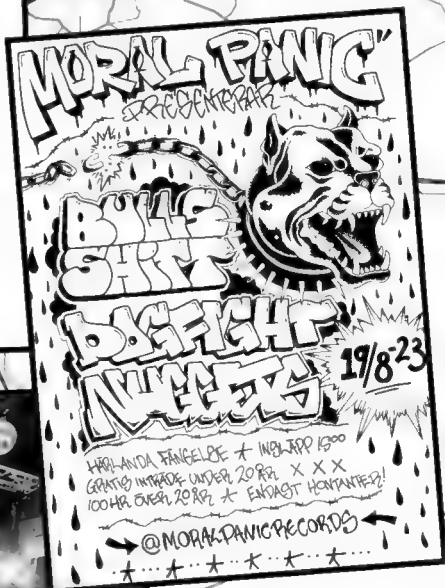 "MORAL PANIC"
PRESENTERAR
BULLS
SHITT
DOGFIGHT
NUGGETS
19/8-23
HÄRLANDA FÄNGELSE ★ INSLÄPP 1500
GRATIS INTRÄDE UNDER 20 ÅR X X X
100 KR ÖVER 20 ÅR ★ ENDAST KONTANTER!
@MORALPANICRECORDS